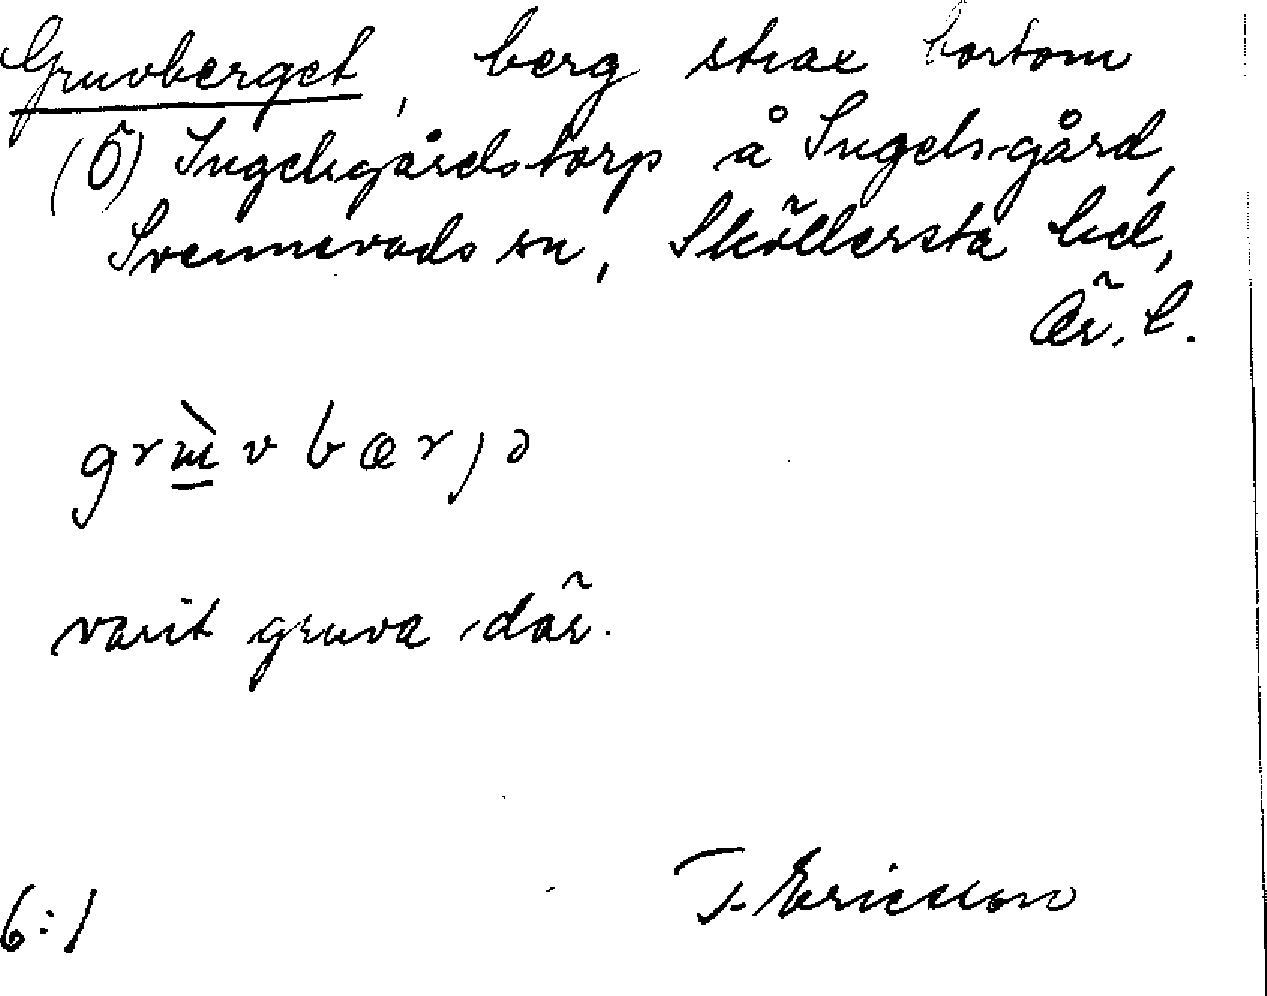 Gruvberget, berg strax bortom
(Ö) Ingelsgårdstorp å Ingelsgård,
Svennevads sn, Sköllersta hd,
Ör. l.
varit gruva där.
6:1
T. Ericsson